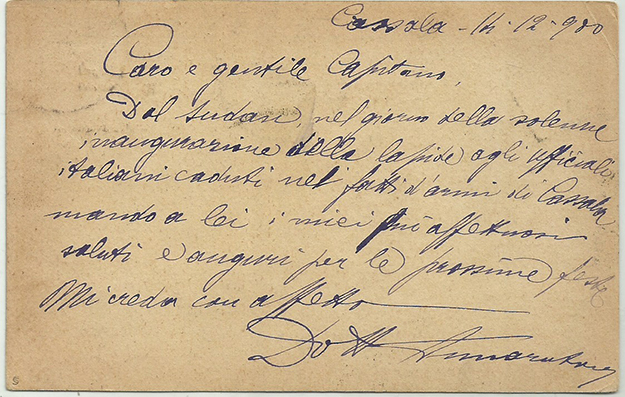 Cassala - 14-12-900
Caro e gentile Capitano,
Dal Sudan, nel giorno della solenne
inaugurazione della lapide agli Ufficiali
italiani caduti nei fatti d'armi di Cassala
mando a lei i miei più affettuosi
saluti e auguri per le prossime feste
Mi creda con affetto
Dott